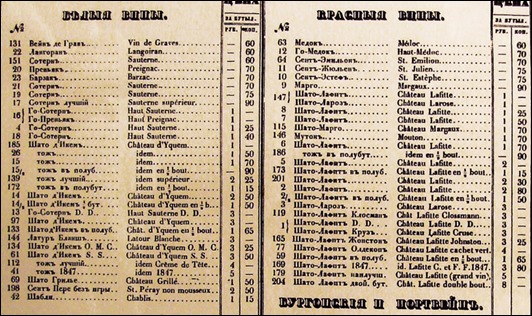 БѢЛЫЯ ВИНЫ.
ЗА БУТЫЛ.
№ РУБ. КОП.
131 Вейнъ де Гравъ. Vin de Graves. — 60
22 Лангоранъ. Langoiran. — 60
151 Сотернъ. Sauterne. — 60
20 Преньякъ. Preignac. — 70
23 Барзакъ. Barzac. — 70
21 Сотернъ. Sauterne. — 70
19 Сотернъ. Sauterne. — 75
17 Сотернъ лучшій Sauterne supérieur. — 90
16 Го-Сотернъ. Haut Sauterne. 1 —
Го-Преньякъ. Haut Preignac. 1 —
4 Го-Сотернъ. Haut Sauterne. 1 25
18 Го-Сотернъ. Haut Sauterne. 1 40
185 Шато д'Икемъ. Château d'Yquem.
26 тожъ idem
15 тожъ idem
15/a тожъ въ полуб. idem en ½ bout.
139 тожъ лучшій. idem supérieur. 2 25
172 тожъ въ полубут. idem en ½ bout. 1 15
14 Шато д'Икемъ. Château d'Yquem.
14/a Шато д'Икемъ ½ бут. Château d'Yquem en ½ b.
13 Го-Сотернъ D. D. Haut Sauterne D. D. 3 —
97 Шато д'Икемъ. Château d'Yquem. 3 —
133 Шато д'Икемъ въ полуб. Chât. d'Yquem en ½ bout. 1 65
144 Латуръ Бланшъ. Latour Blanche. 3 —
134 Шато д'Икемъ O. M. C. Château d'Yquem O. M. C. 3 25
61 Шато д'Икемъ S. S. Château d'Yquem S. S. 3 50
112 тожъ лучшій. idem Crême de Tête. 4 —
41 тожъ 1847. idem 1847. 5 —
69 Шато Грилье. Château Grillé. 1 50
198 Сентъ Пере безъ игры. St. Péray non mousseux. 2 50
42 Шабли. Chablis. 1 15
КРАСНЫЯ ВИНЫ.
ЗА БУТЫЛ.
№ РУБ. КОП.
63 Медокъ. Médoc. — 60
12 Го-Медокъ. Haut-Médoc. — 70
64 Сентъ-Эмильонъ. St. Emilion. — 70
11 Сентъ-Жюльенъ. St. Julien. — 70
10 Сентъ-Эстефъ. St. Estèphe. — 75
9 Марго. Margaux. — 90
147 Шато-Лафитъ. Château Lafitte. 1 —
Шато-Ларозъ. Château Larose. 1 —
8 Шато-Лафитъ. Château Lafitte. 1 25
7 Шато-Лафитъ. Château Lafitte. 1 50
115 Шато-Марго. Château Margaux. 1 50
146 Мутонъ. Mouton. 1 70
6 Шато-Лафитъ. Château Lafitte.
186 тожъ въ полубут. idem en ½ bout. — 90
5 Шато-Лафитъ. Château Lafitte. 2 —
173 Шато-Лафитъ въ полуб. Château Lafitte en ½ bout. 1
201 Шато-Лафитъ. Château Lafitte. 2
2 Шато-Лафитъ. Château Lafitte.
Шато-Лафитъ въ полуб. Château Lafitte en ½ bout.
3 Шато-Ларозъ. Château Larose. 3
119 Шато-Лафитъ Клосманъ Château Lafitte Clossmann. 3 —
1 Шато-Лафитъ D. D. Château Lafitte D. D. 3 —
Шато-Лафитъ Крузъ. Château Lafitte Cruse. 3 —
165 Шато-Лафитъ Жонстонъ Château Lafitte Johnston. 3 25
77 Шато-Лафитъ Château Lafitte cachet vert. 3 50
59 Шато-Лафитъ въ полуб. Château Lafitte en ½ bout. 1 65
169 Шато-Лафитъ 1847. id. Lafitte C. et F. 1847. 3 —
179 Шато-Лафитъ Château Lafitte (grand vin). 5 —
204 Шато-Лафитъ двой. бут. Chât. Lafitte double bout. 8 —
БУРГОНСКІЯ И ПОРТВЕЙНЪ.